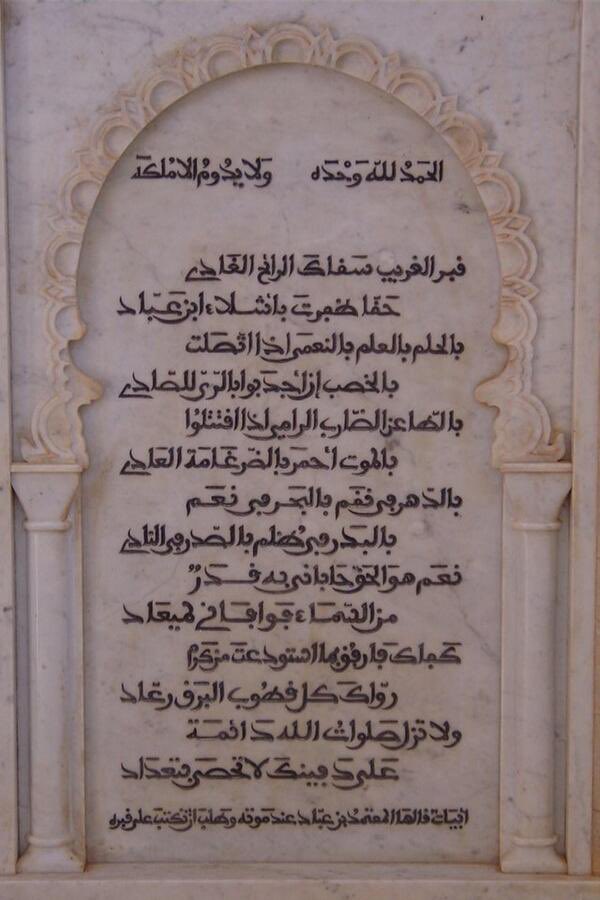 الحَمْدُ لله وَحْدَه ولا يدُومُ إلا مُلكه
قبر الغريب سَقاكَ الرائح الغَادي
حَقّا ظفرتَ بأشلاء ابن عَبّاد
بالحلم بالعلم بالنعمى إذا اتّصلت
بالخصب إن أجدبوا بالريّ للصّادي
بالطّاعن الضّارب الرامي إذا اقتتلوا
بالموت أحمر بالضرغامة العَادي
بالدّهر في نقم بالبَحر في نعَم
بالبدر في ظُلم بالصّدر في النادي
نعَم هو الحَقّ حَاباني به قَدَرٌ
من السّمَاء فوافاني لميعَاد
كَفاك فارفق بما استودعتَ من كرَم
روّاكَ كل قطُوب البرق رعّاد
ولا تزل صَلوات الله دَائمة
على دَفينكَ لا تحصَى بتعدَاد
أبيات قالها المعتمدُ بن عبّاد عند موته وطلب أن تكتبَ على قبره